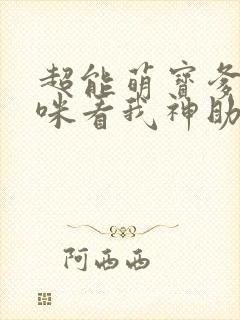 超能萌宝爹
咪看我神助
阿西西